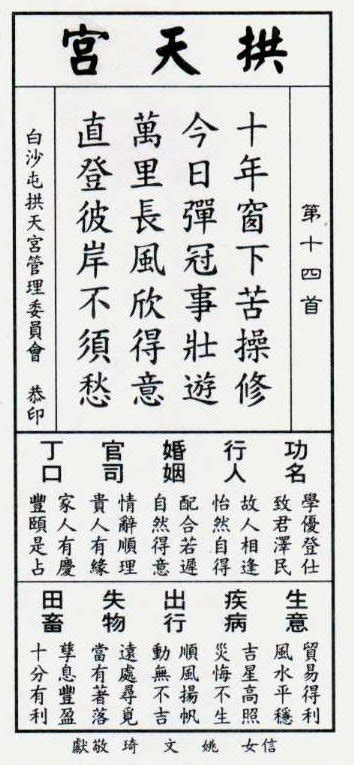 拱天宮
第十四首
十年窗下苦操修
今日彈冠事壯遊
萬里長風欣得意
直登彼岸不須愁
白沙屯拱天宮管理委員會 恭印
功名
學優登仕
致君澤民
行人
故人相逢
怡然自得
婚姻
配合若遲
自然得意
官司
情辭順理
貴人有緣
丁口
家人有慶
豐頤是占
生意
貿易得利
風水平穩
疾病
吉星高照
災悔不生
出行
順風揚帆
動無不吉
失物
遠處尋覓
當有著落
田畜
孳息豐盈
十分有利
信女 姚文琦 敬獻